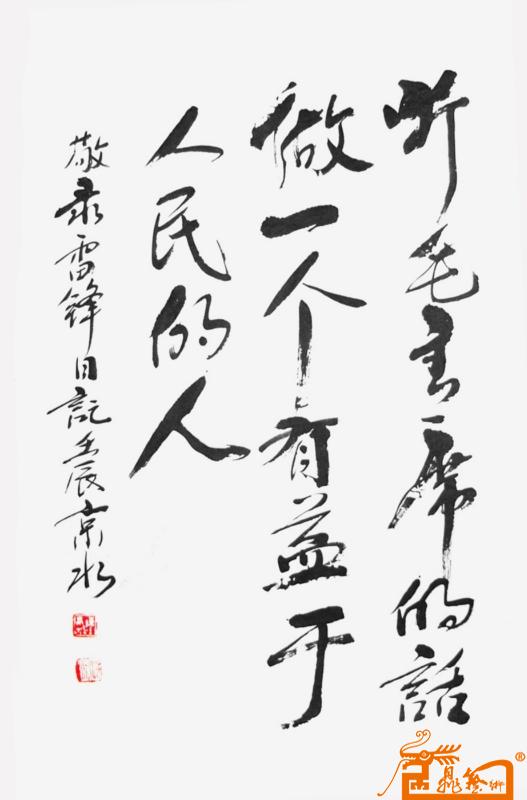 听毛主席的話
做一个有益于
人民的人
敬录雷锋日記壬辰京水